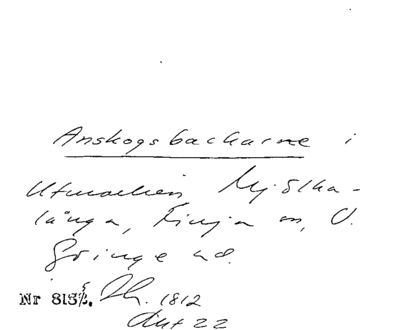 Anskogsbackarne i
Utmarken Mjölka-
långa, Finja sn, V.
Göinge hd.
Nr 815½, Lh. 1812
Akt 22